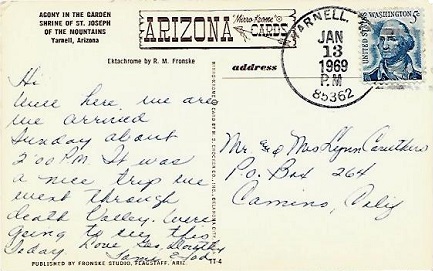 AGONY IN THE GARDEN
SHRINE OF ST. JOSEPH
OF THE MOUNTAINS
Yarnell, Arizona
Mirro-Krome
ARIZONA CARDS
Ektachrome by R. M. Fronske
YARNELL,
JAN
13
1969
P.M
85362
UNITED STATES
WASHINGTON 5c
address
Hi
Were here, we are
we arrived
Sunday about
2:00 P.M. It was
a nice trip we
went through
death Valley. Were
going to see this
today. Love, Dorothy
Mr & Mrs Lynn Caruthers
P.O. Box 264
Camino, Calif
PUBLISHED BY FRONSKE STUDIO, FLAGSTAFF, ARIZ.
11-4